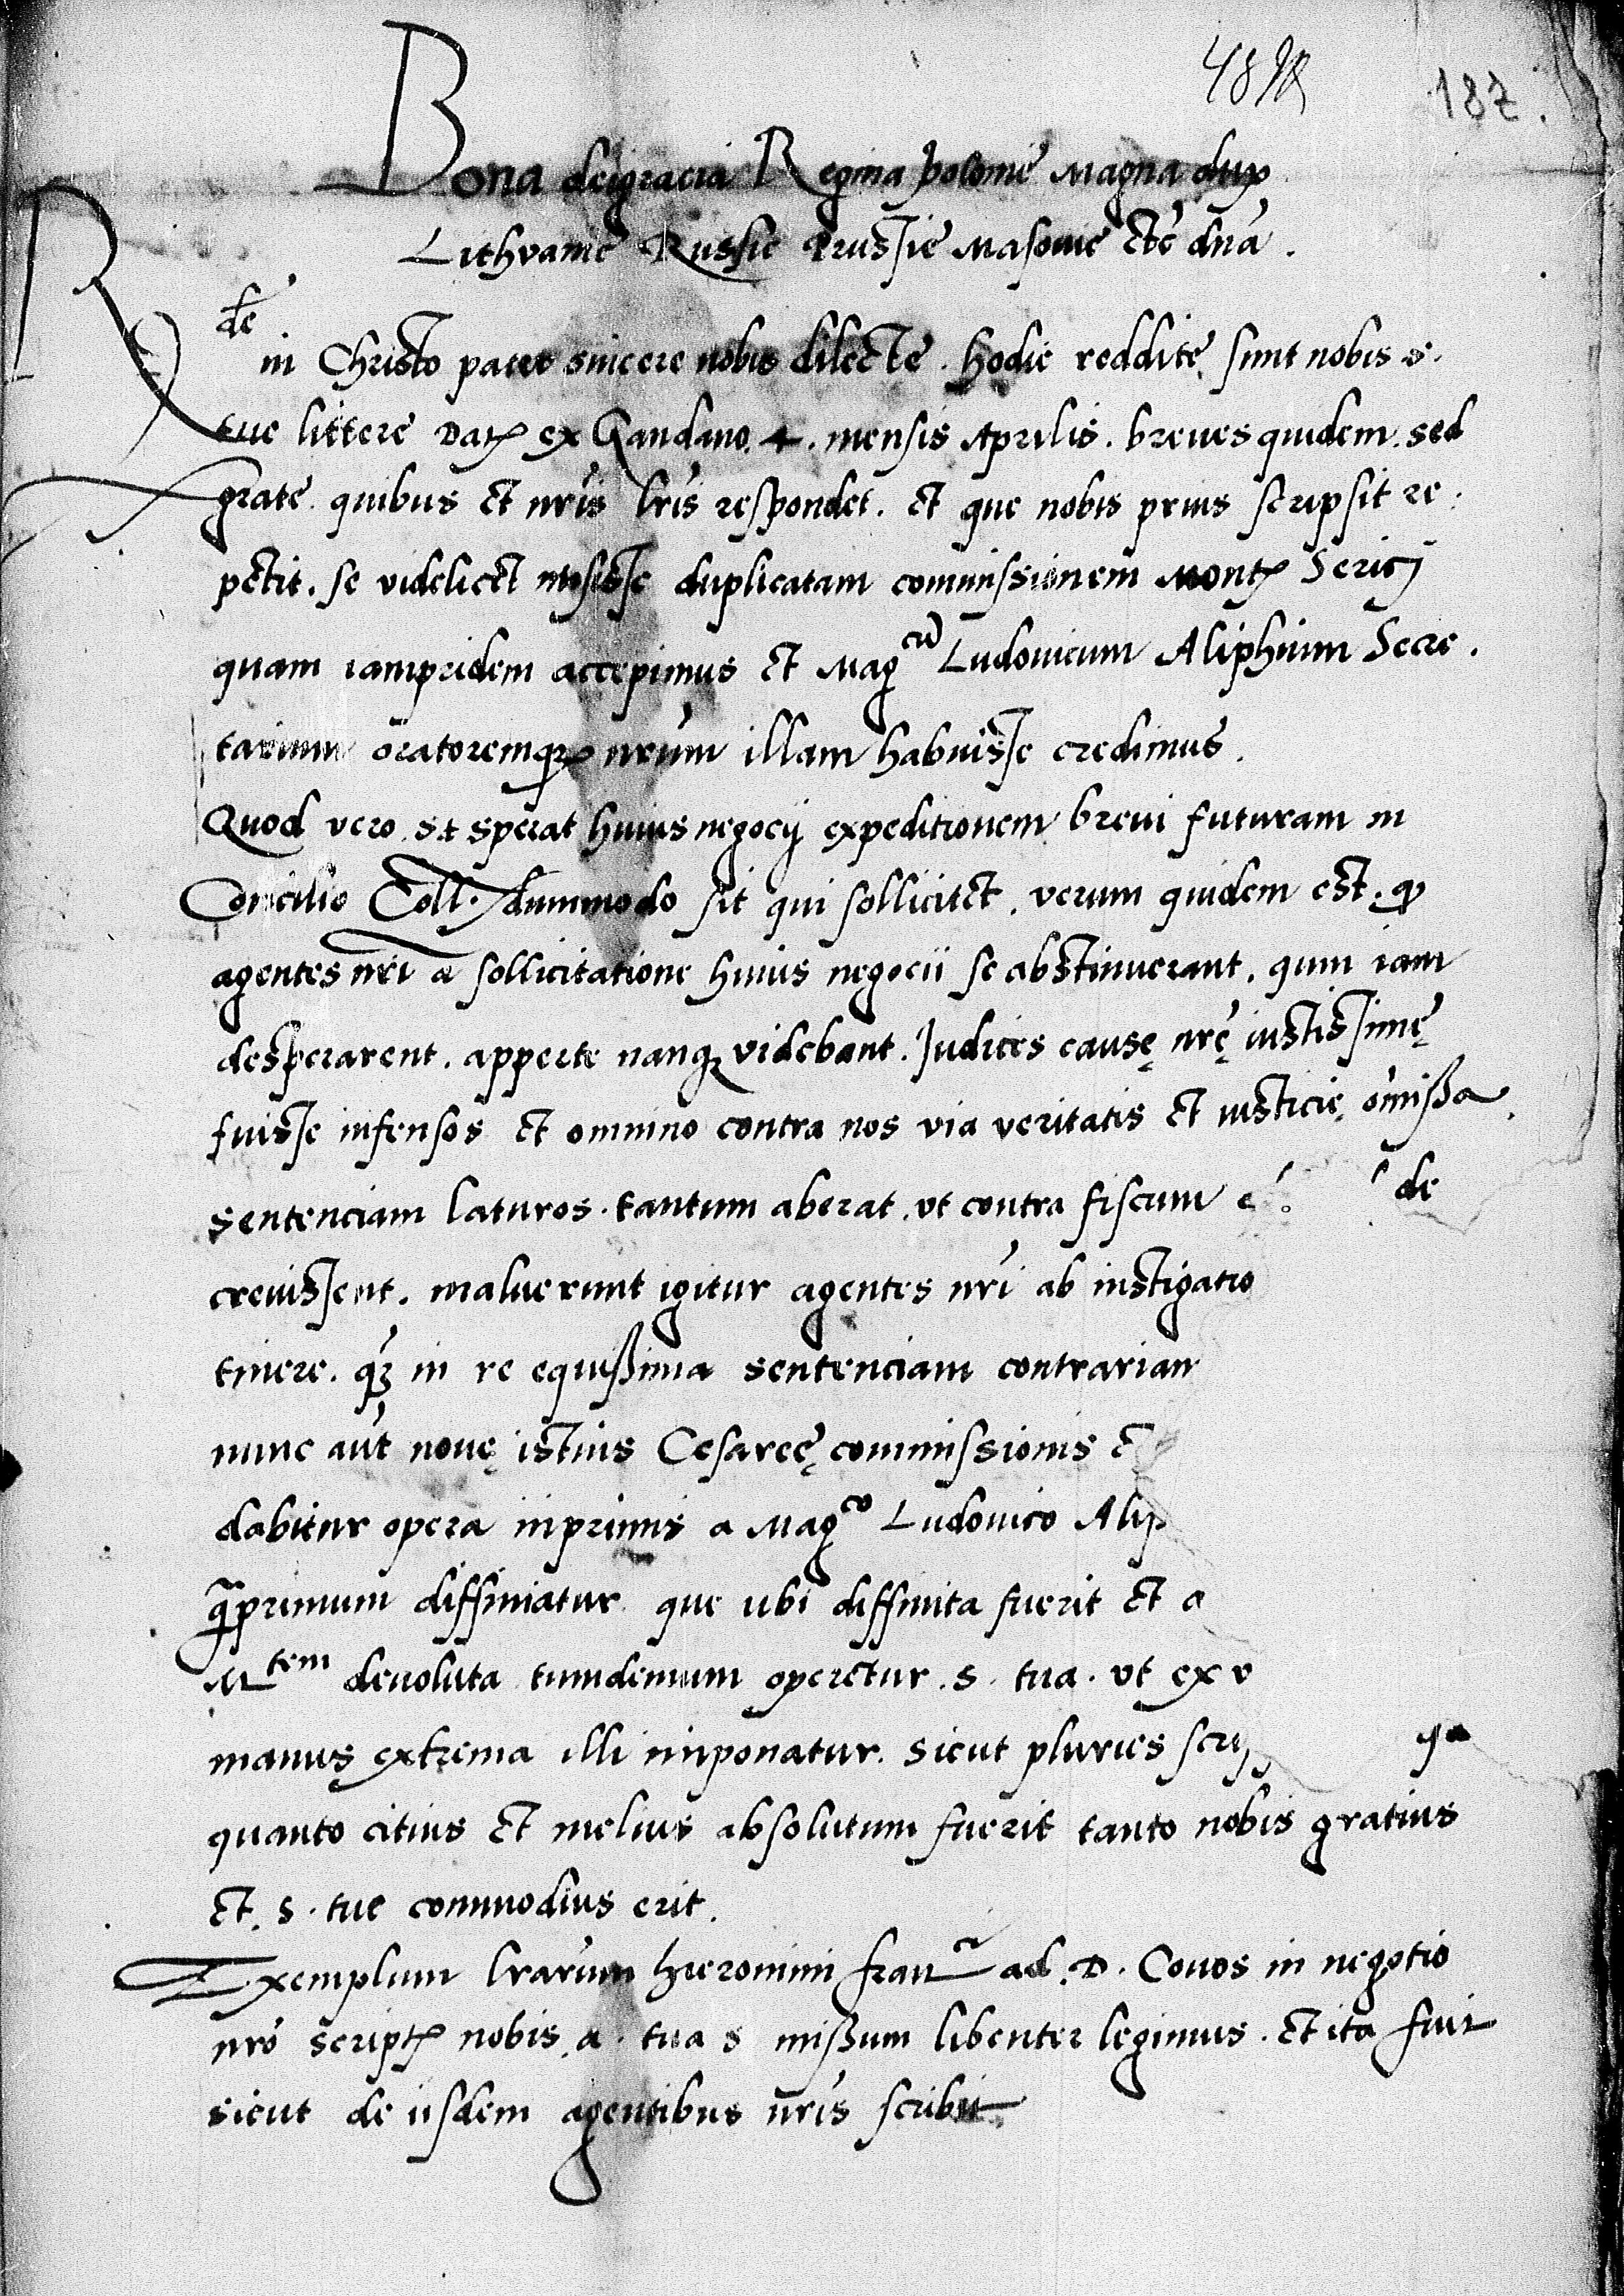 187.
Bona deigracia Regina polonie Magna dux
Lithvanie Russie Prussie Masovie etc̃ dña.
Rde in Christo pater sincere nobis dilecte. Hodie reddite sunt nobis s.
tue littere Datę ex Gandavo. 4. mensis Aprilis. breves quidem. sed
grate. quibus et nr̃is lr̃is respondet. et que nobis prius scripsit re
petit. se videlicet misisse duplicatam commissionem Montis Sericj
quam iampridem accepimus et Magcũ Ludovicum Aliphium Secre.
tarium oratoremqȝ nrũm illam habuisse credimus.
Quod vero st sperat huius negocij expeditionem brevi futuram in
Concilio Coll. dummodo sit qui sollicitet. verum quidem est. ꝙ
agentes nr̃i a sollicitatione huius negocii se abstinuerant. qum iam
desperarent. apperte nanqȝ videbant. Judices causę nr̃ę iustissimę
fuisse infensos et omnino contra nos via veritatis et iusticię om̃ißa
sentenciam laturos. tantum aberat. ut contra fiscum de
crevissent. maluerunt igitur agentes nr̃i ab instigatio
tinere. qȝ in re equißima sentenciam contrariam
nunc aũt novę istius Cesareę commissionis
dabitur opera inprimis a Magco Ludovico Alip
q̃primum diffiniatur que ubi diffinita fuerit et a
Mtem devoluta tumdemum operetur. s. tua. ut ex v
manus extrema illi imponatur. sicut pluries scri
quanto citius et melius absolutum fuerit tanto nobis gratius
et. s. tue commodius erit.
Exemplum lrarũm Hieronimi fran ad. D. Covos in negotio
nr̃o scriptȝ nobis. a. tua s mißum libenter legimus. Et ita fuit
sicut de iisdem agentibus nr̃is scribit.